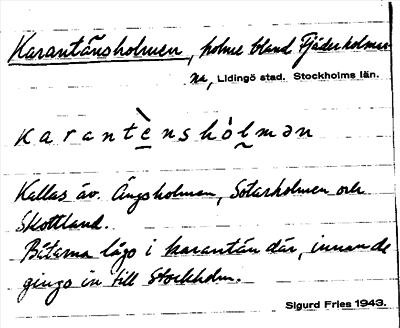 Karantänsholmen, holme bland Fjäderholmar
na, Lidingö stad. Stockholms län.
karantè̱nshòl̰mən
Kallas äv. Ängsholmen, Sotarholmen och
Skottland.
Båtarna lågo i karantän där, innan de
gingo in till Stockholm.
Sigurd Fries 1943.